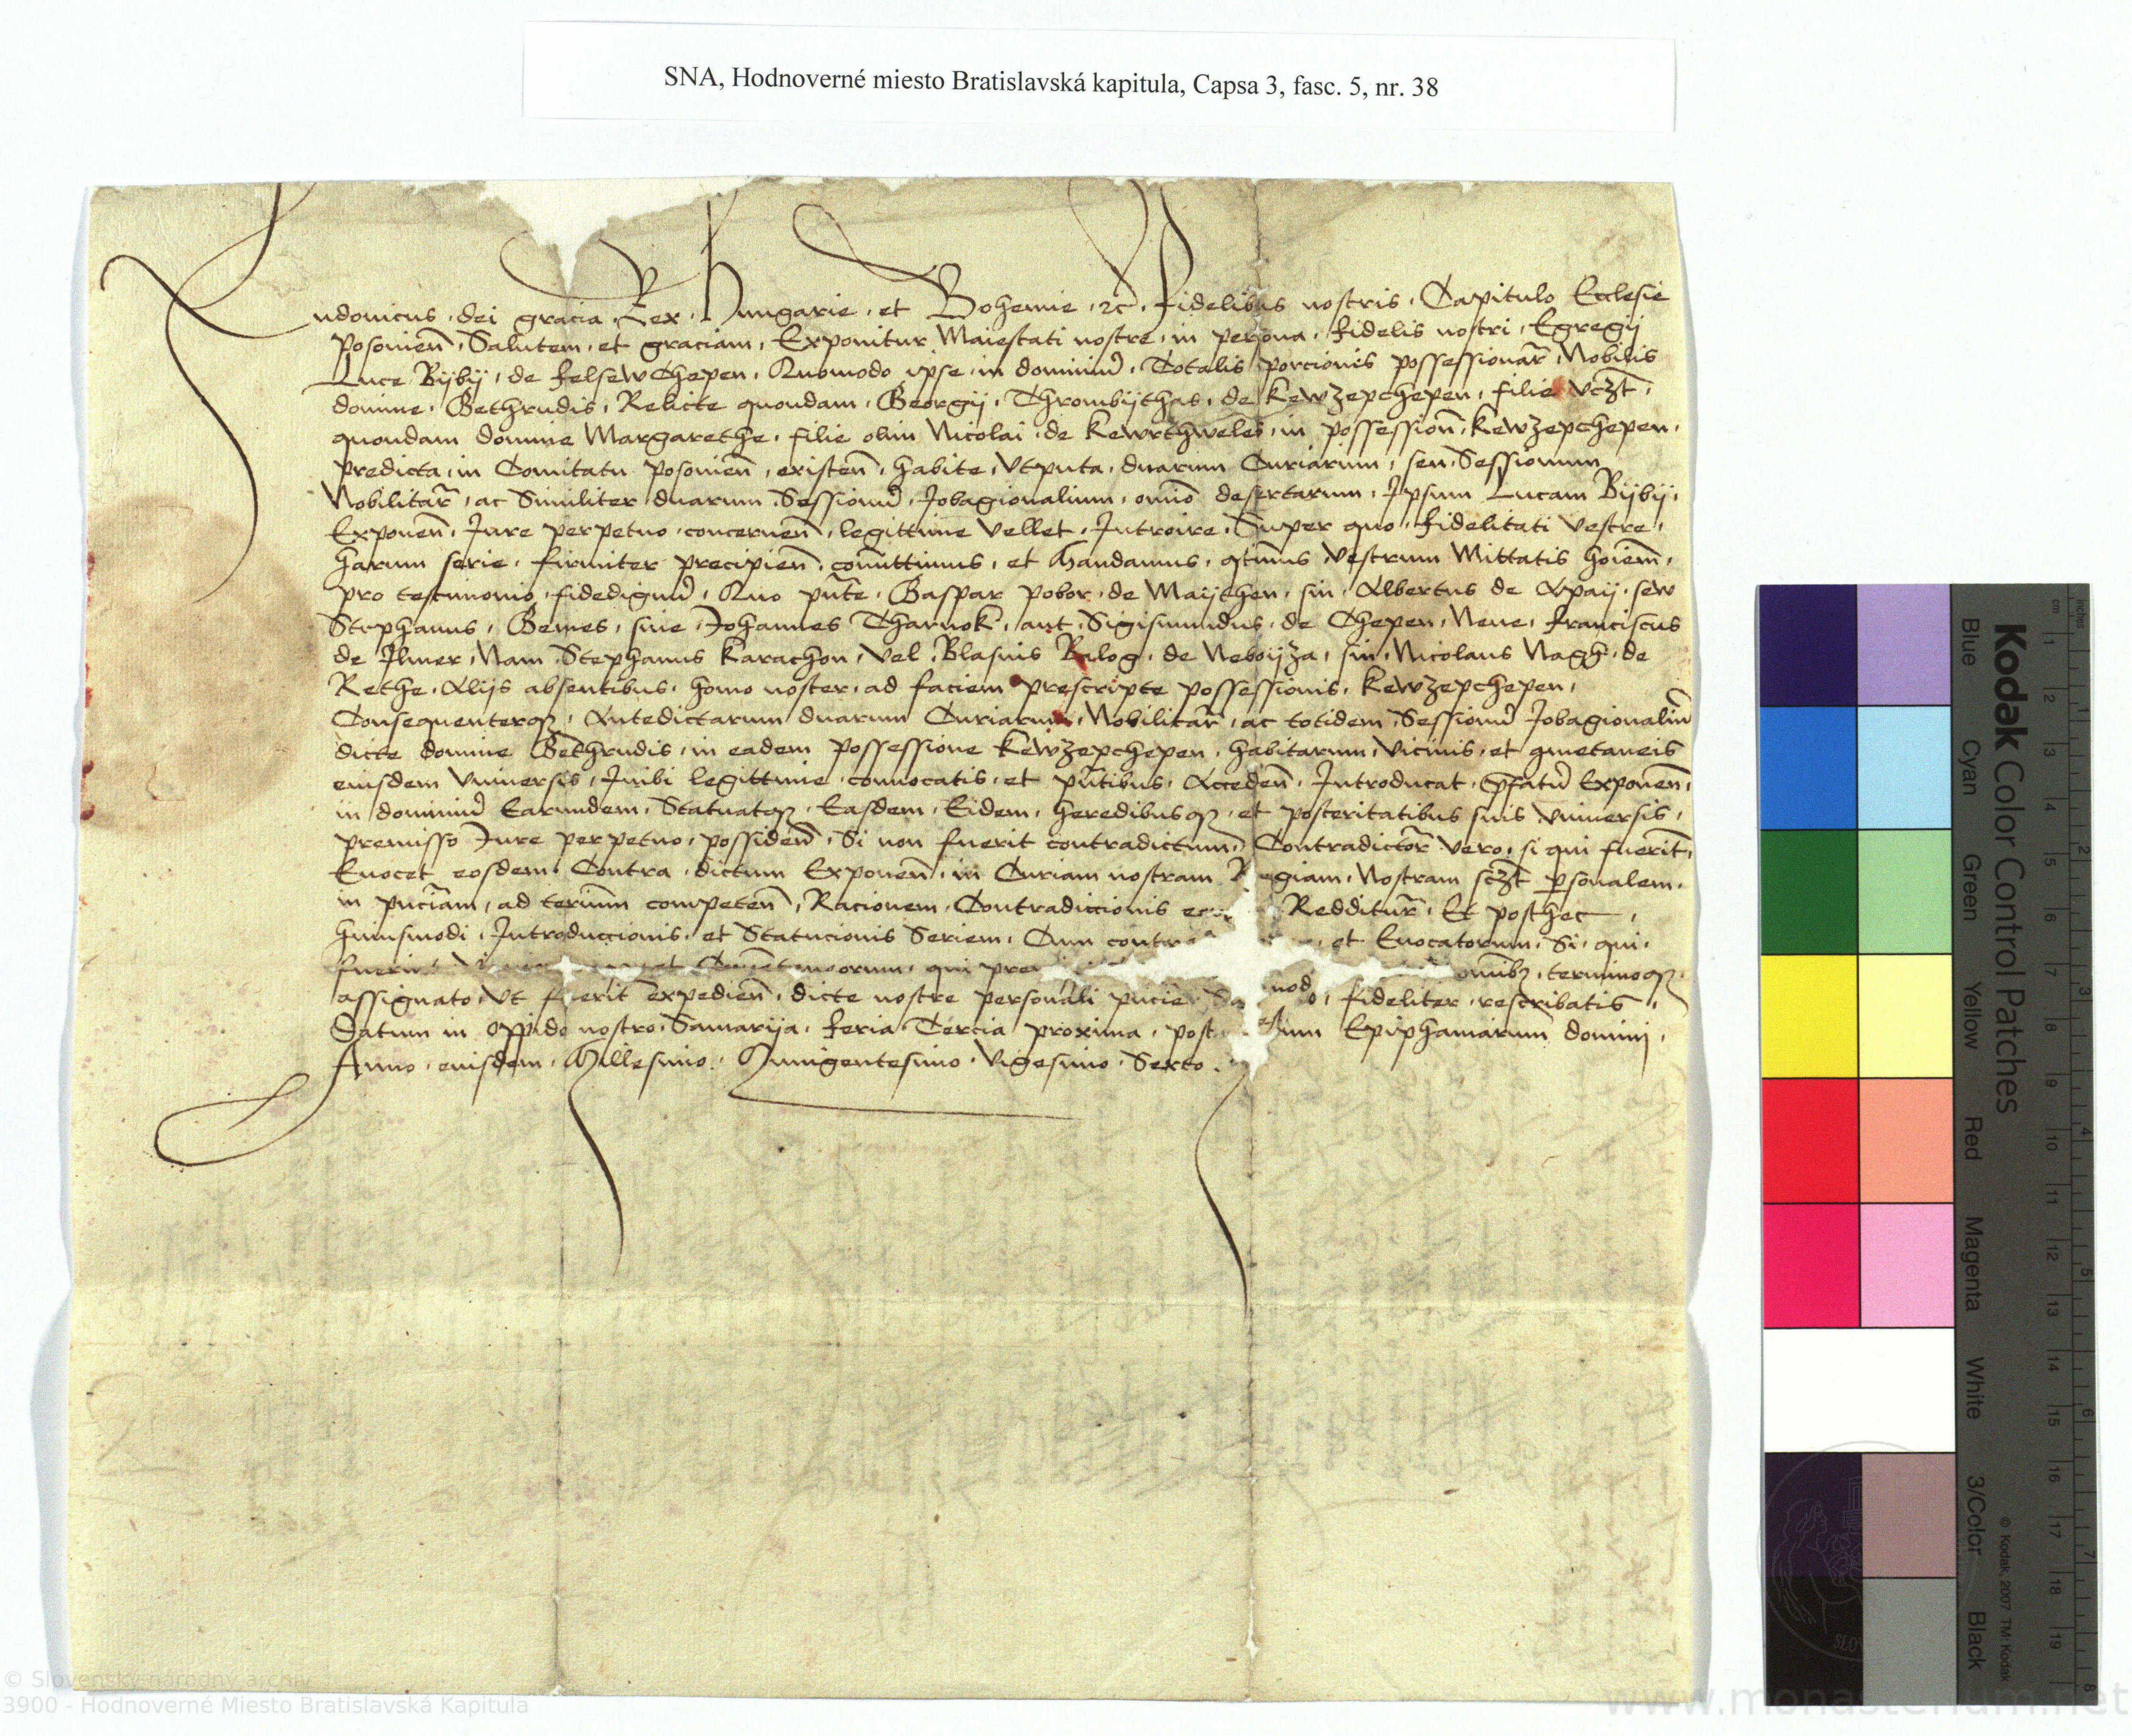 SNA, Hodnoverné miesto Bratislavská kapitula, Capsa 3, fasc. 5, nr. 38
Ludouicus dei gracia Rex Hungarie et Bohemie etc. fidelibus nostris Capitulo Ecclesie
Posonien̄ Salutem et graciam, Exponitur Maiestati nostre in persona fidelis nostri Egregij
Luce Bijbij de felsewChepen, Quomodo ipse in dominiū Totalis porcionis possessionar̄ Nobilis
domine Gethrudis, Relicte quondam Georgij Thrombijthas de Kewzepchepen, filie vcȝt
quondam domine Margarethe filie olim Nicolai de Kewrthweles in possession̄ Kewzepchepen
predicta in Comitatu posonien̄ existen̄ habite, Vtputa duarum Curiarum seu Sessionum
Nobilitar̄ ac Similiter duarum Sessionū Jobagionalium om̄io desertarum, Ipsum Lucam Bijbij
Exponen̄ Jure perpetuo concernen̄ legittime vellet Introire, Super quo fidelitati vestre
harum serie firmiter precipien̄ com̄ittimus et Mandamus, q̄tinus Vestrum Mittatis hoiēm
pro testimonio fidedignū, Quo pn̄te Gaspar Pobor de Maijthen, siu Albertus de Apaij sew
Stephanus Bemes, siue Johannes Tharnok, aut Sigismundus de Chepen, Neue franciscus
de Ilmer, Nam Stephanus Karachon, vel Blasius Balog de Neboijza, siu Nicolaus Nagh de
Rethe, Alijs absentibus homo noster ad faciem prescripte possessionis Kewzepchepen,
Consequenterqꝫ Antedictarum duarum Curiarum Nobilitar̄ ac totidem Sessionū Jobagionaliū
dicte domine Gethrudis in eadem possessione Kewzepchepen habitarum, vicinis et cmetaneis
eiusdem vniuersis Inibi legittime conuocatis et pn̄tibus, Acceden̄ Introducat p̄fatū Exponen̄
in dominiū Earundem, Statuatqꝫ Easdem Eidem heredibusqꝫ et posteritatibus suis vniuersis
premisso Jure perpetuo possiden̄, Si non fuerit contradictum, Contradictor̄ vero si qui fuerīt
Euocet eosdem Contra dictum Exponen̄ in Curiam nostram Regiam, Nostram scȝt ꝑsonalem
in pn̄ciam ad termīnm competen̄, Racionem Contradiccionis eor Redditur̄, Et posthec
huiusmodi Introduccionis et Statucionis Seriem, Cum contra et Euocatorum, Si qui
fuerint qui pre om̄ibꝫ terminoqꝫ
assignato, vt fuerit expedien̄ dicte nostre personali pn̄cie fideliter rescribatis,
Datum in oppido nostro Samarija, feria Tercia proxima post Epiphaniarum domini,
Anno eiusdem Millesimo Quingentesimo Vigesimo Sexto.
Kodak Color Control Patches
Blue Cyan Green Yellow Red Magenta White 3/Color Black
cm 1 2 3 4 5 6 7 8 9 10 11 12 13 14 15 16 17 18 19
inches 1 2 3 4 5 6 7 8
© Kodak, 2007 TM: Kodak
© Slovenský národný archív
3900 - Hodnoverné Miesto Bratislavská Kapitula
www.monasterium.net